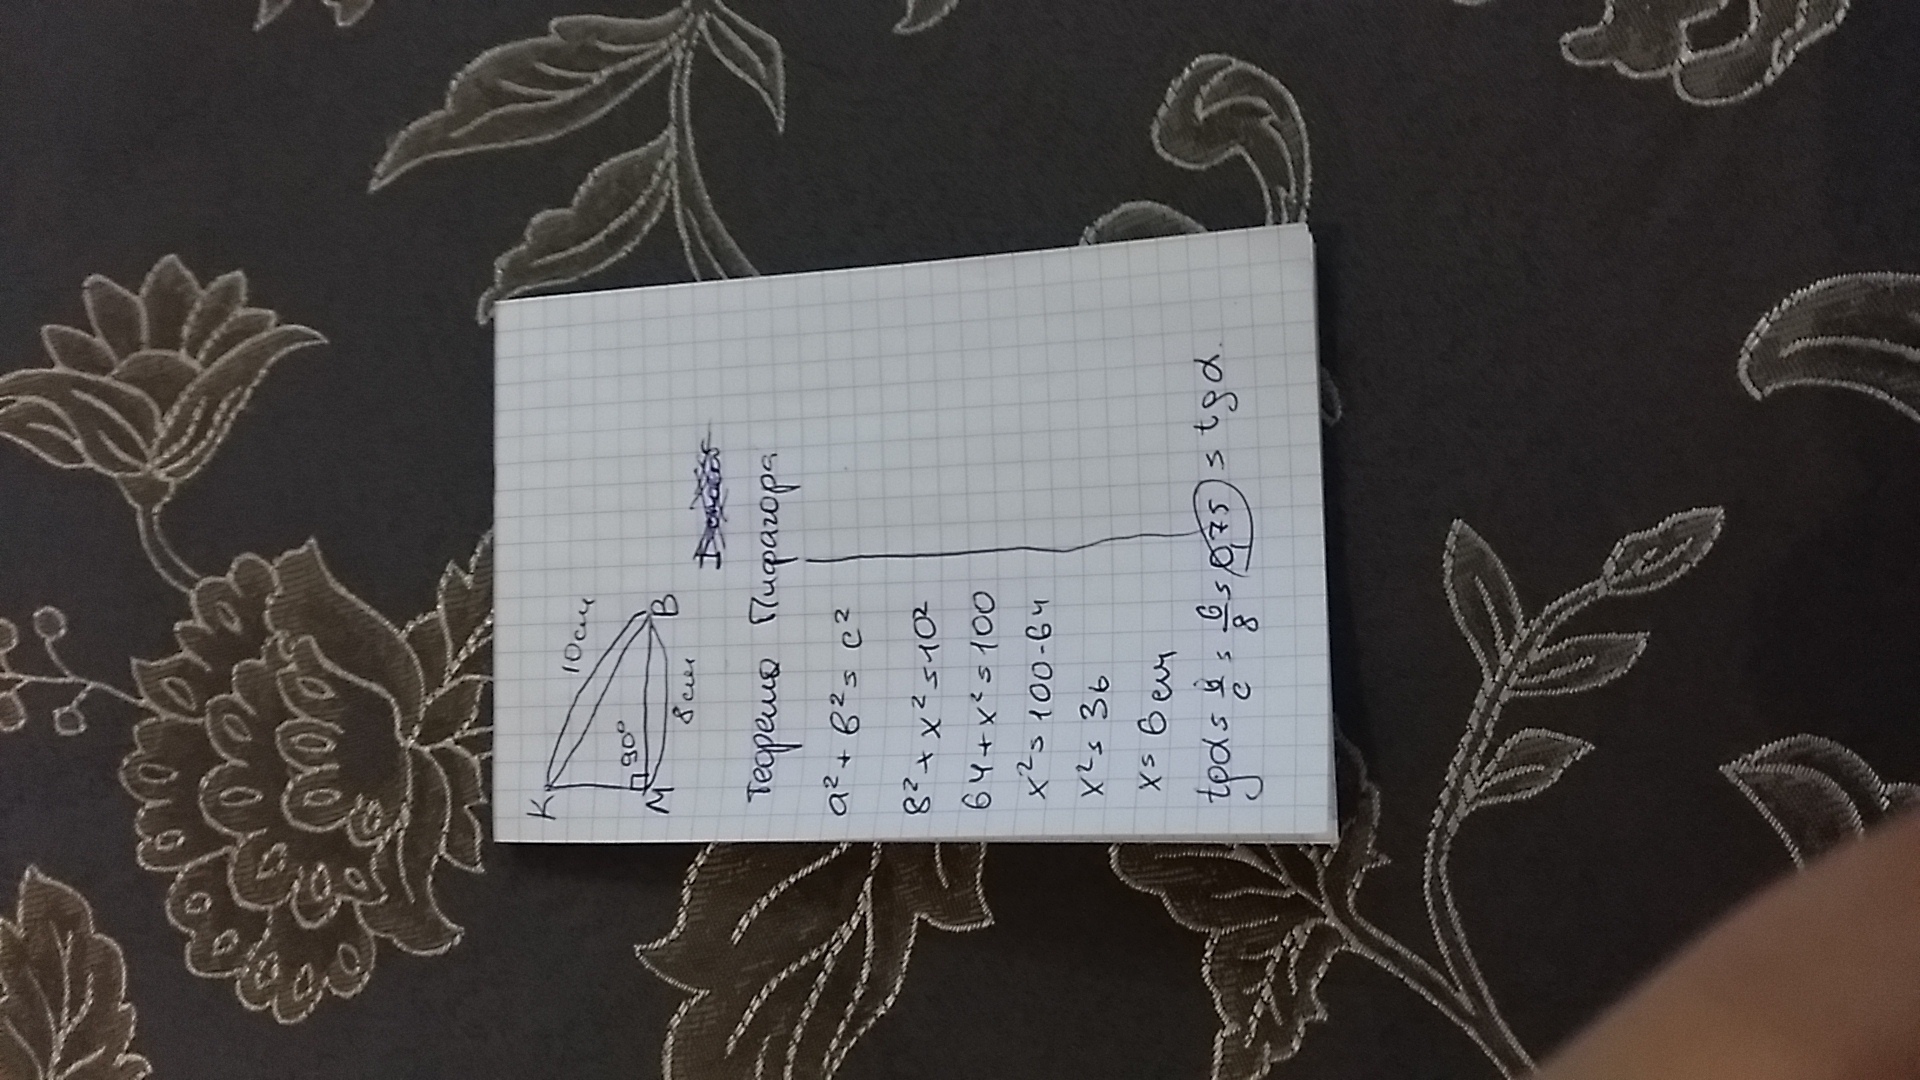 K
10см
90°
M
B
8см
Теорема Пифагора
a² + b² = c²
8² + x² = 10²
64 + x² = 100
x² = 100 - 64
x² = 36
x = 6 см
tgα = = 6/8 = 0,75 = tgα.